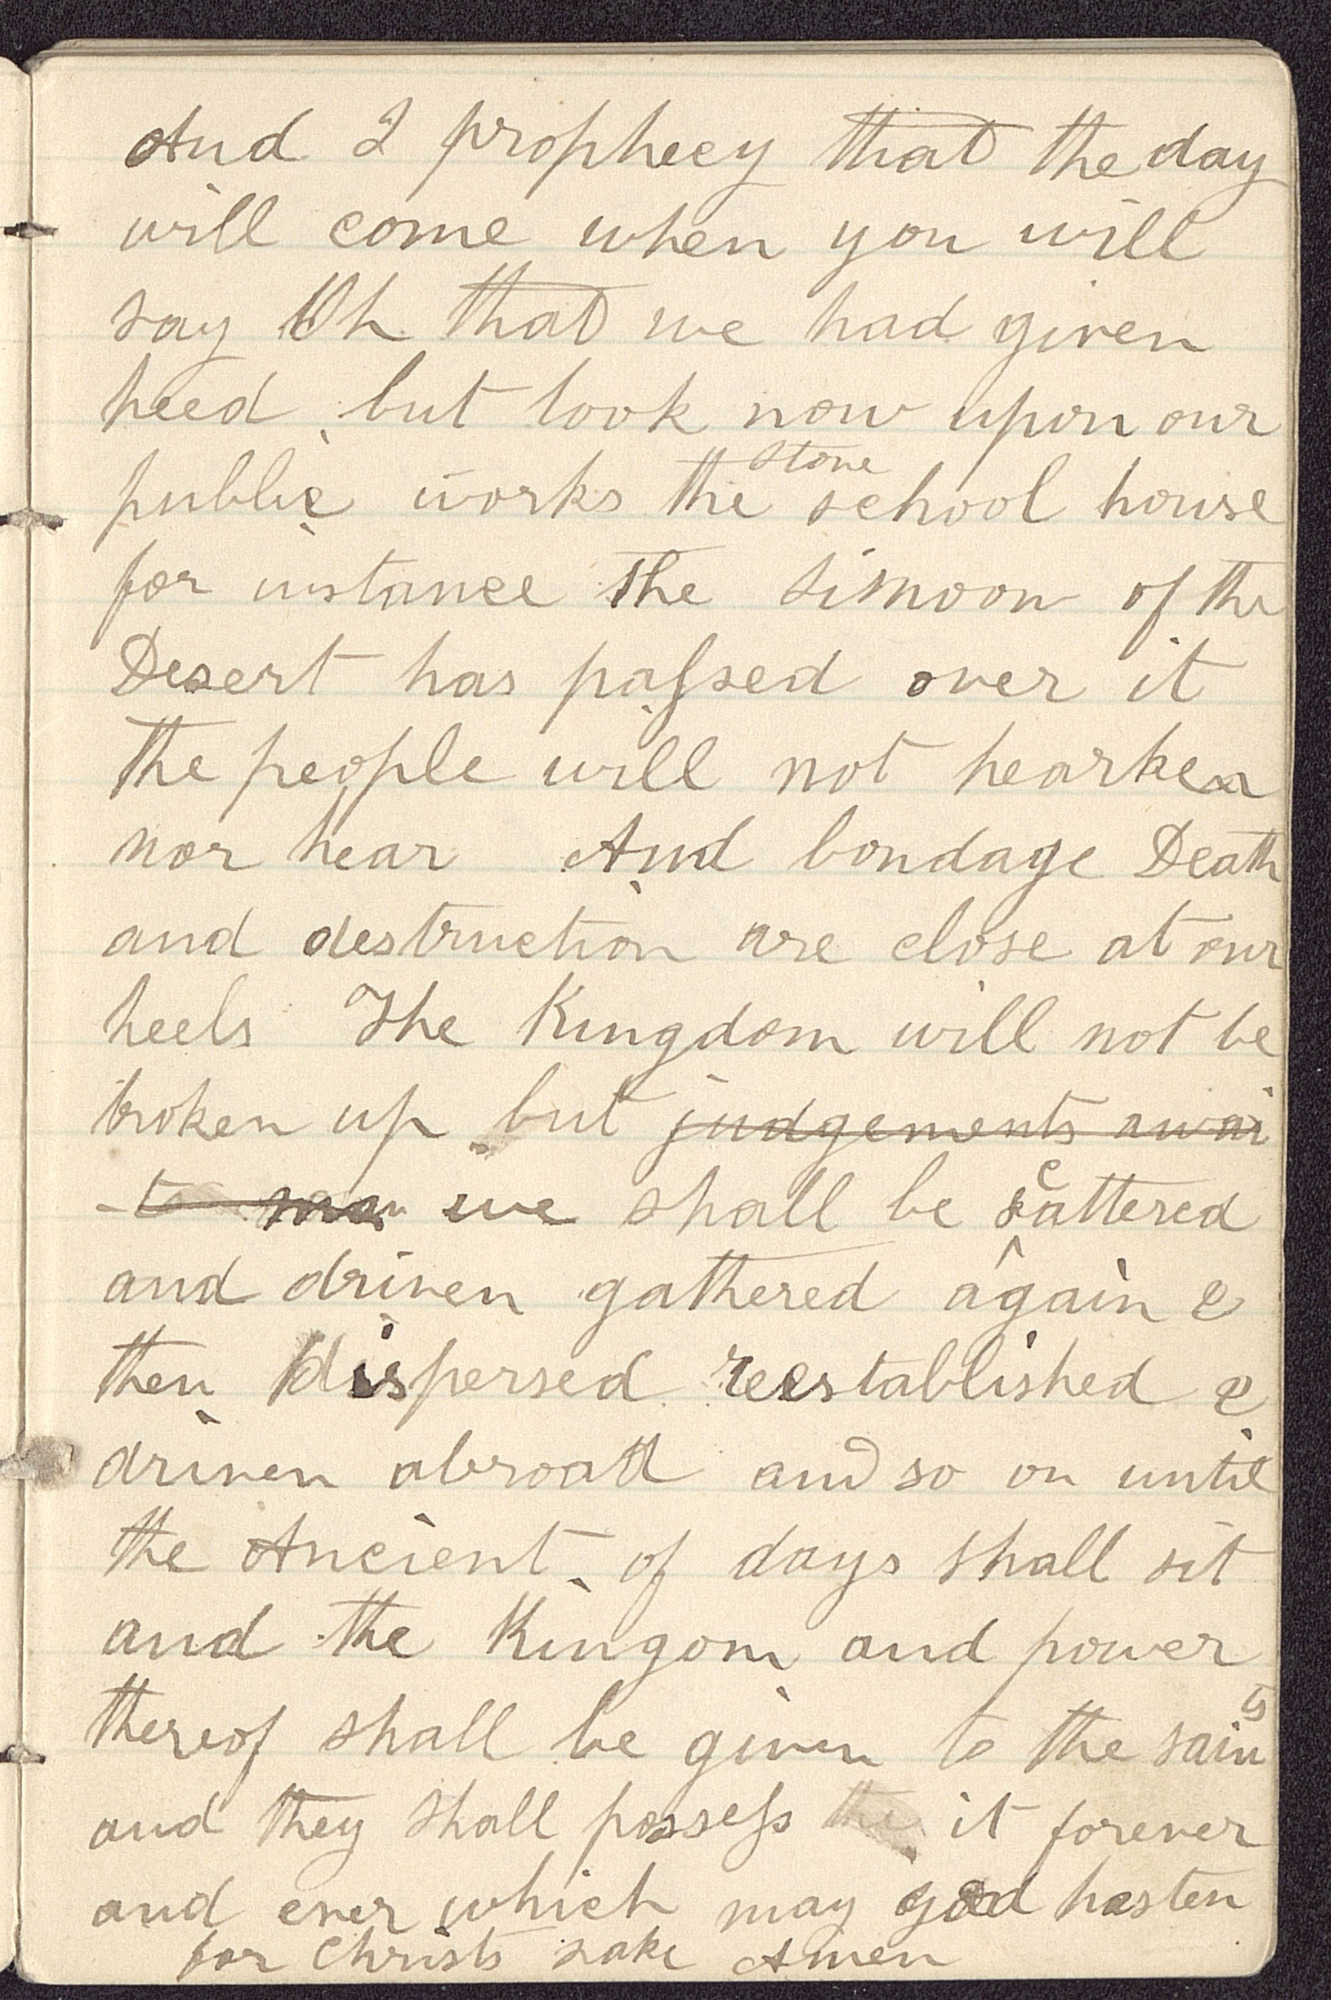 And I prophecy that the day
will come when you will
say Oh that we had given
heed, but look now upon our
public works the stone school house
for instance the simoon of the
Desert has passed over it
the people will not hearken
nor hear And bondage Death
and destruction are close at our
heels The Kingdom will not be
broken up but judgements awai
-ts man we shall be scattered
and driven gathered again &
then dispersed reestablished &
driven abroad and so on until
the Ancient of days shall sit
and the Kingom and power
thereof shall be given to the saints
and they shall possess the it forever
and ever which may god hasten
for Christs sake Amen